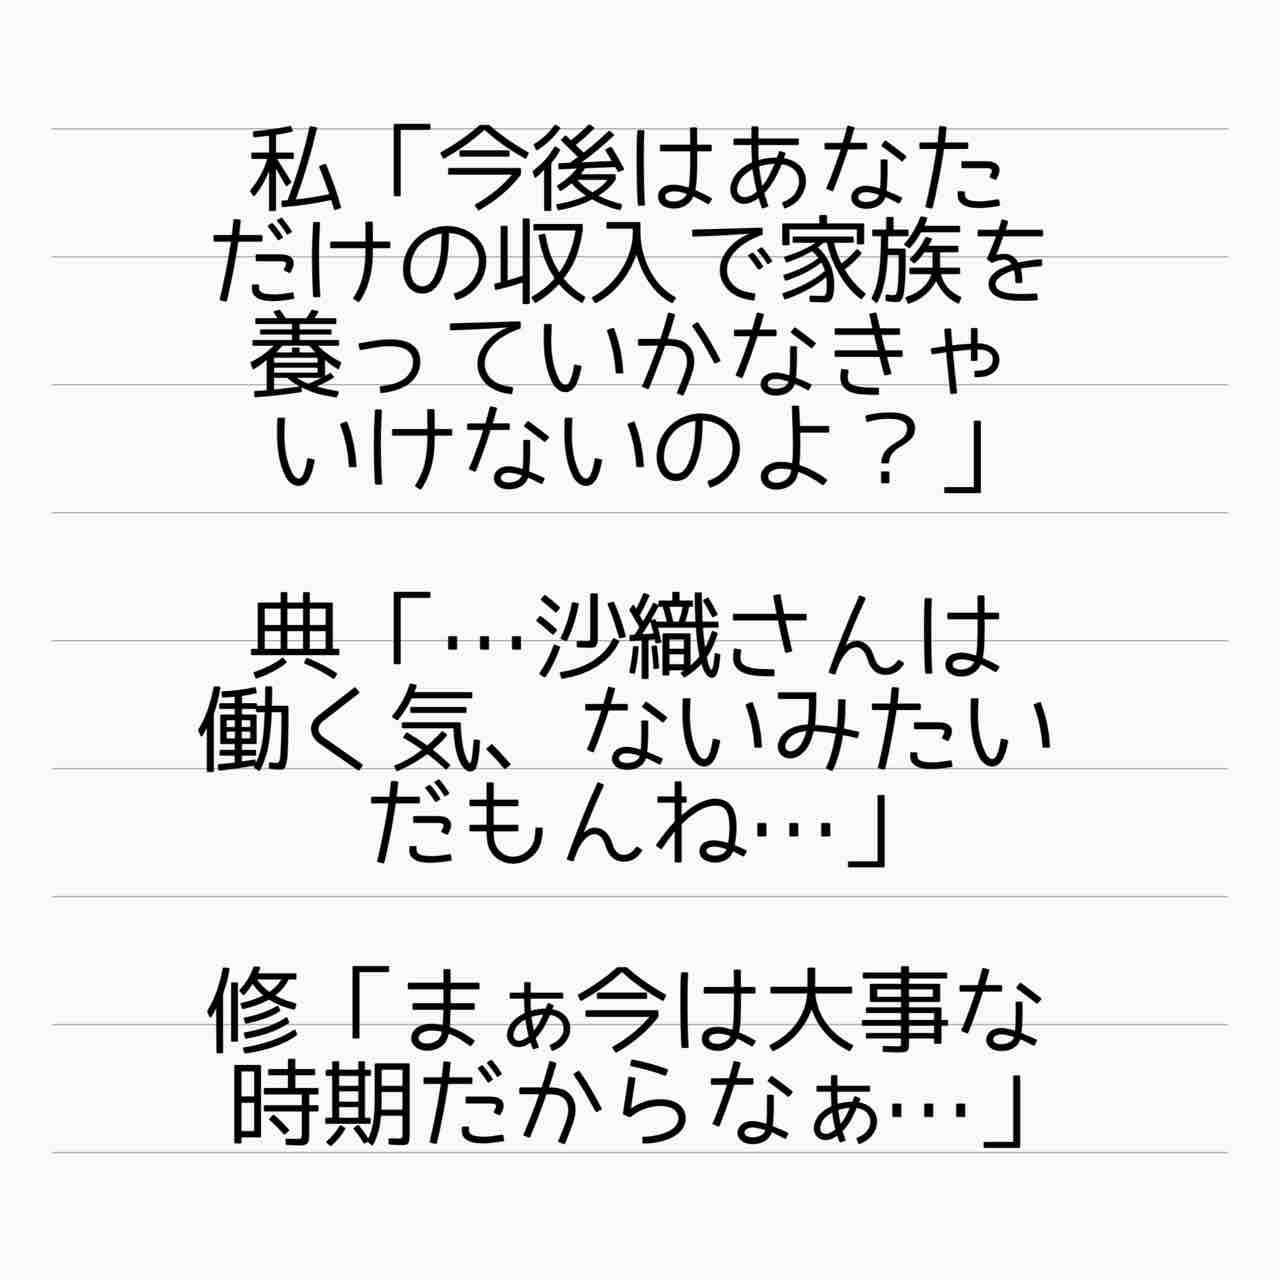 私「今後はあなた
だけの収入で家族を
養っていかなきゃ
いけないのよ？」
典「…沙織さんは
働く気、ないみたい
だもんね…」
修「まぁ今は大事な
時期だからなぁ…」